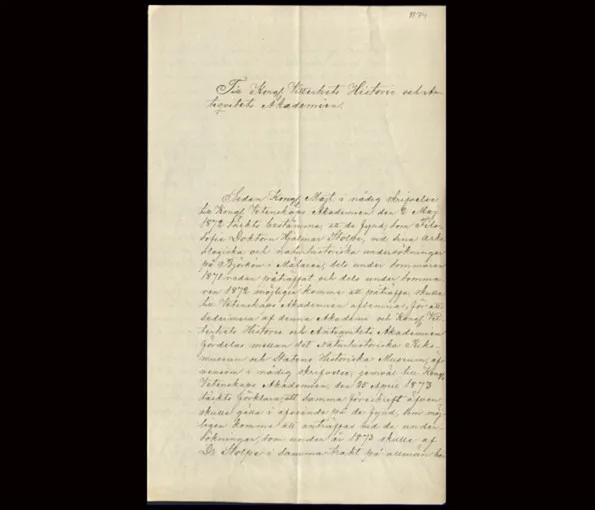 1874
Till Kongl. Vitterhets Historie och An-
tiqvitets Akademien.
Sedan Kongl. Maj:t i nådig skrifvelse
till Kongl. Vetenskaps Akademien den 2 Maj
1872 täckts bestämma, att de fynd, som Filo-
sofie Doktorn Hjalmar Stolpe, vid sina arke-
ologiska och naturhistoriska undersökningar
på Björkön i Mälaren, dels under sommaren
1871 redan påträffat och dels under somma-
ren 1872 möjligen komme att påträffa, skulle
till Vetenskaps Akademien aflemnas, för att
sedermera af denna Akademi och Kongl. Vit-
terhets Historie och Antiqvitets Akademien
fördelas mellan det Naturhistoriska Riks-
museum och Statens Historiska Museum, af-
vensom i nådig skrifvelse, jemväl till Kongl.
Vetenskaps Akademien, den 25 April 1873
täckts förklara, att samma föreskrift äfven
skulle gälla i afseende på de fynd, som möj-
ligen komme att anträffas vid de under-
sökningar, som under år 1873 skulle af
Dr Stolpe i samma trakt på allmän be-